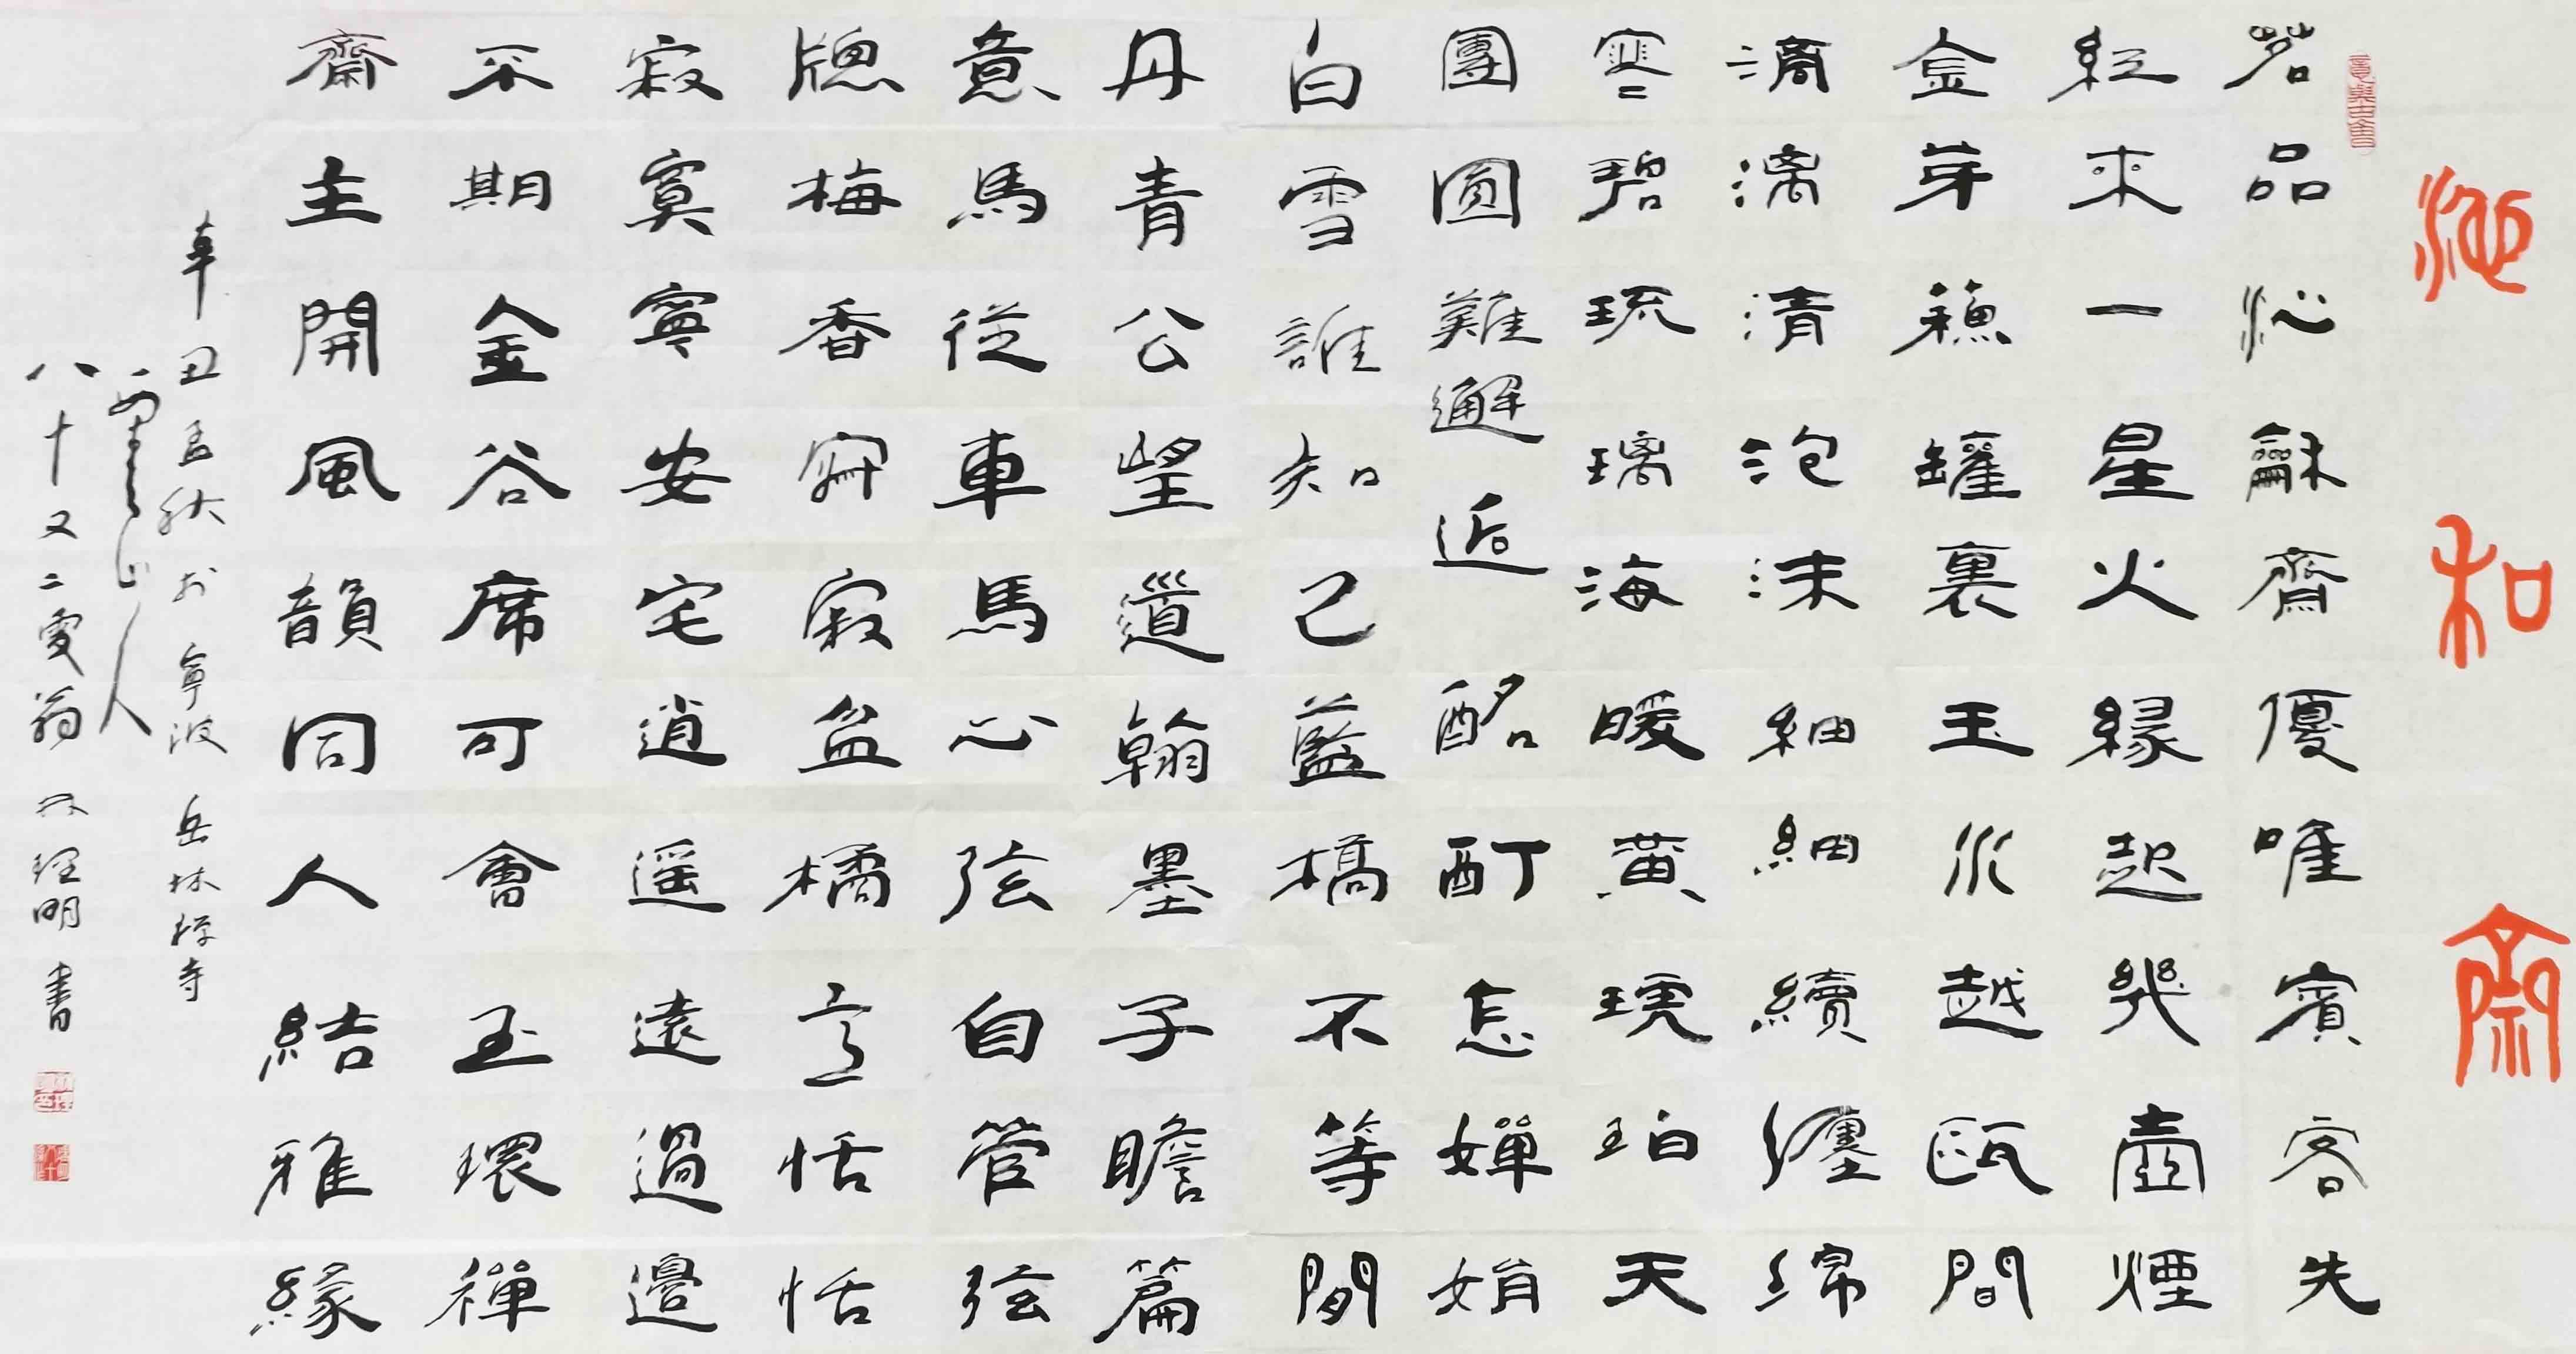 沁和齋
茗品沁龢齋優唯賓客先
紅來一星火緣起幾壺煙
金芽穌罐裏玉水越甌間
滴漓清泡沫細細續纏綿
寒碧琉璃海暖黃琥珀天
團圓難邂逅酩酊怎嬋娟
白雪誰知己藍橋不等閒
丹青公望道翰墨子瞻篇
意馬從車馬心弦自管弦
牕梅香寂盆橘恬恬
寂寞寧安宅逍遥遠過邊
不期金谷席可會玉環禪
齋主開風韻同人結雅緣
辛丑孟秋於寧波岳林禪寺
山人
八十又二叟翁林理明書